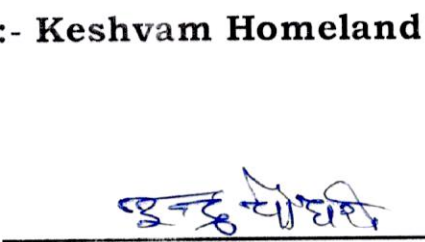 :- Keshvam Homeland
इन्द्र चौधरी